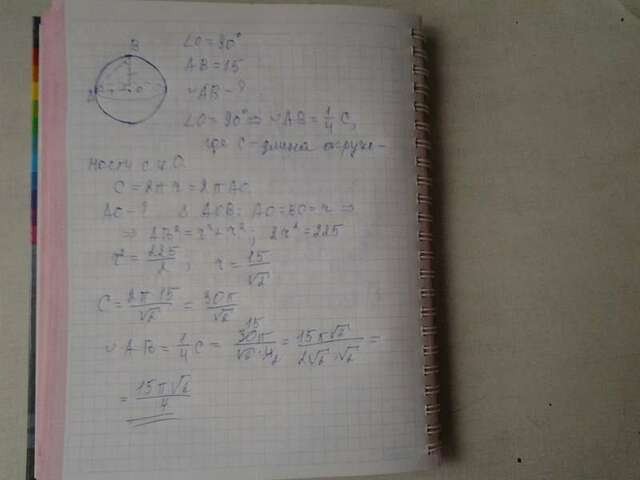 B
A
O
∠O = 90°
AB = 15
◡AB - ?
∠O = 90° ⇒ ◡AB = 1/4 C,
где C - длина окруж-
ности с ц. O.
C = 2πr = 2πAO.
AO - ? Δ AOB: AO = BO = r ⇒
⇒ AB² = r² + r²; 2r² = 225
r² = 225/2; r = 15/√2
C = 2π·15/√2 = 30π/√2
◡AB = 1/4 C = 30π/√2·4 = 15π√2/2√2·√2 =
15
2
= 15π√2/4